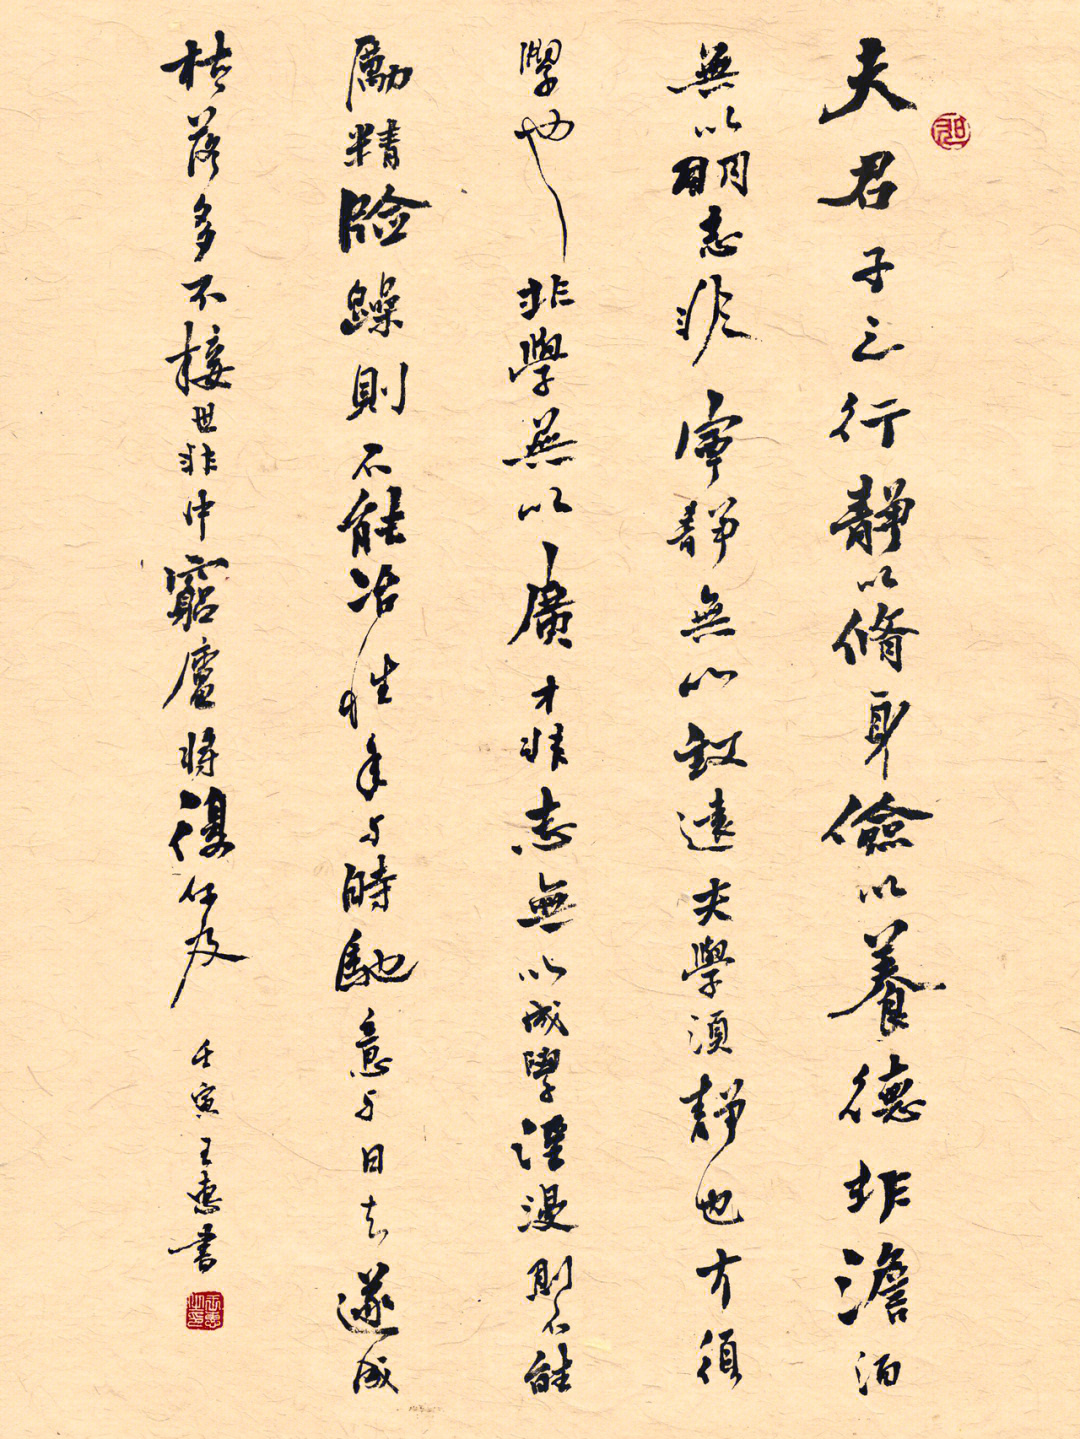 夫君子之行靜以脩身儉以養德非澹泊
無以明志非寧靜無以致遠夫學須靜也才須
學也非學無以廣才非志無以成學淫漫則不能
勵精險躁則不能治性年与時馳意与日去遂成
枯落多不接世悲守窮廬將復何及
壬寅王惠書
王惠之印